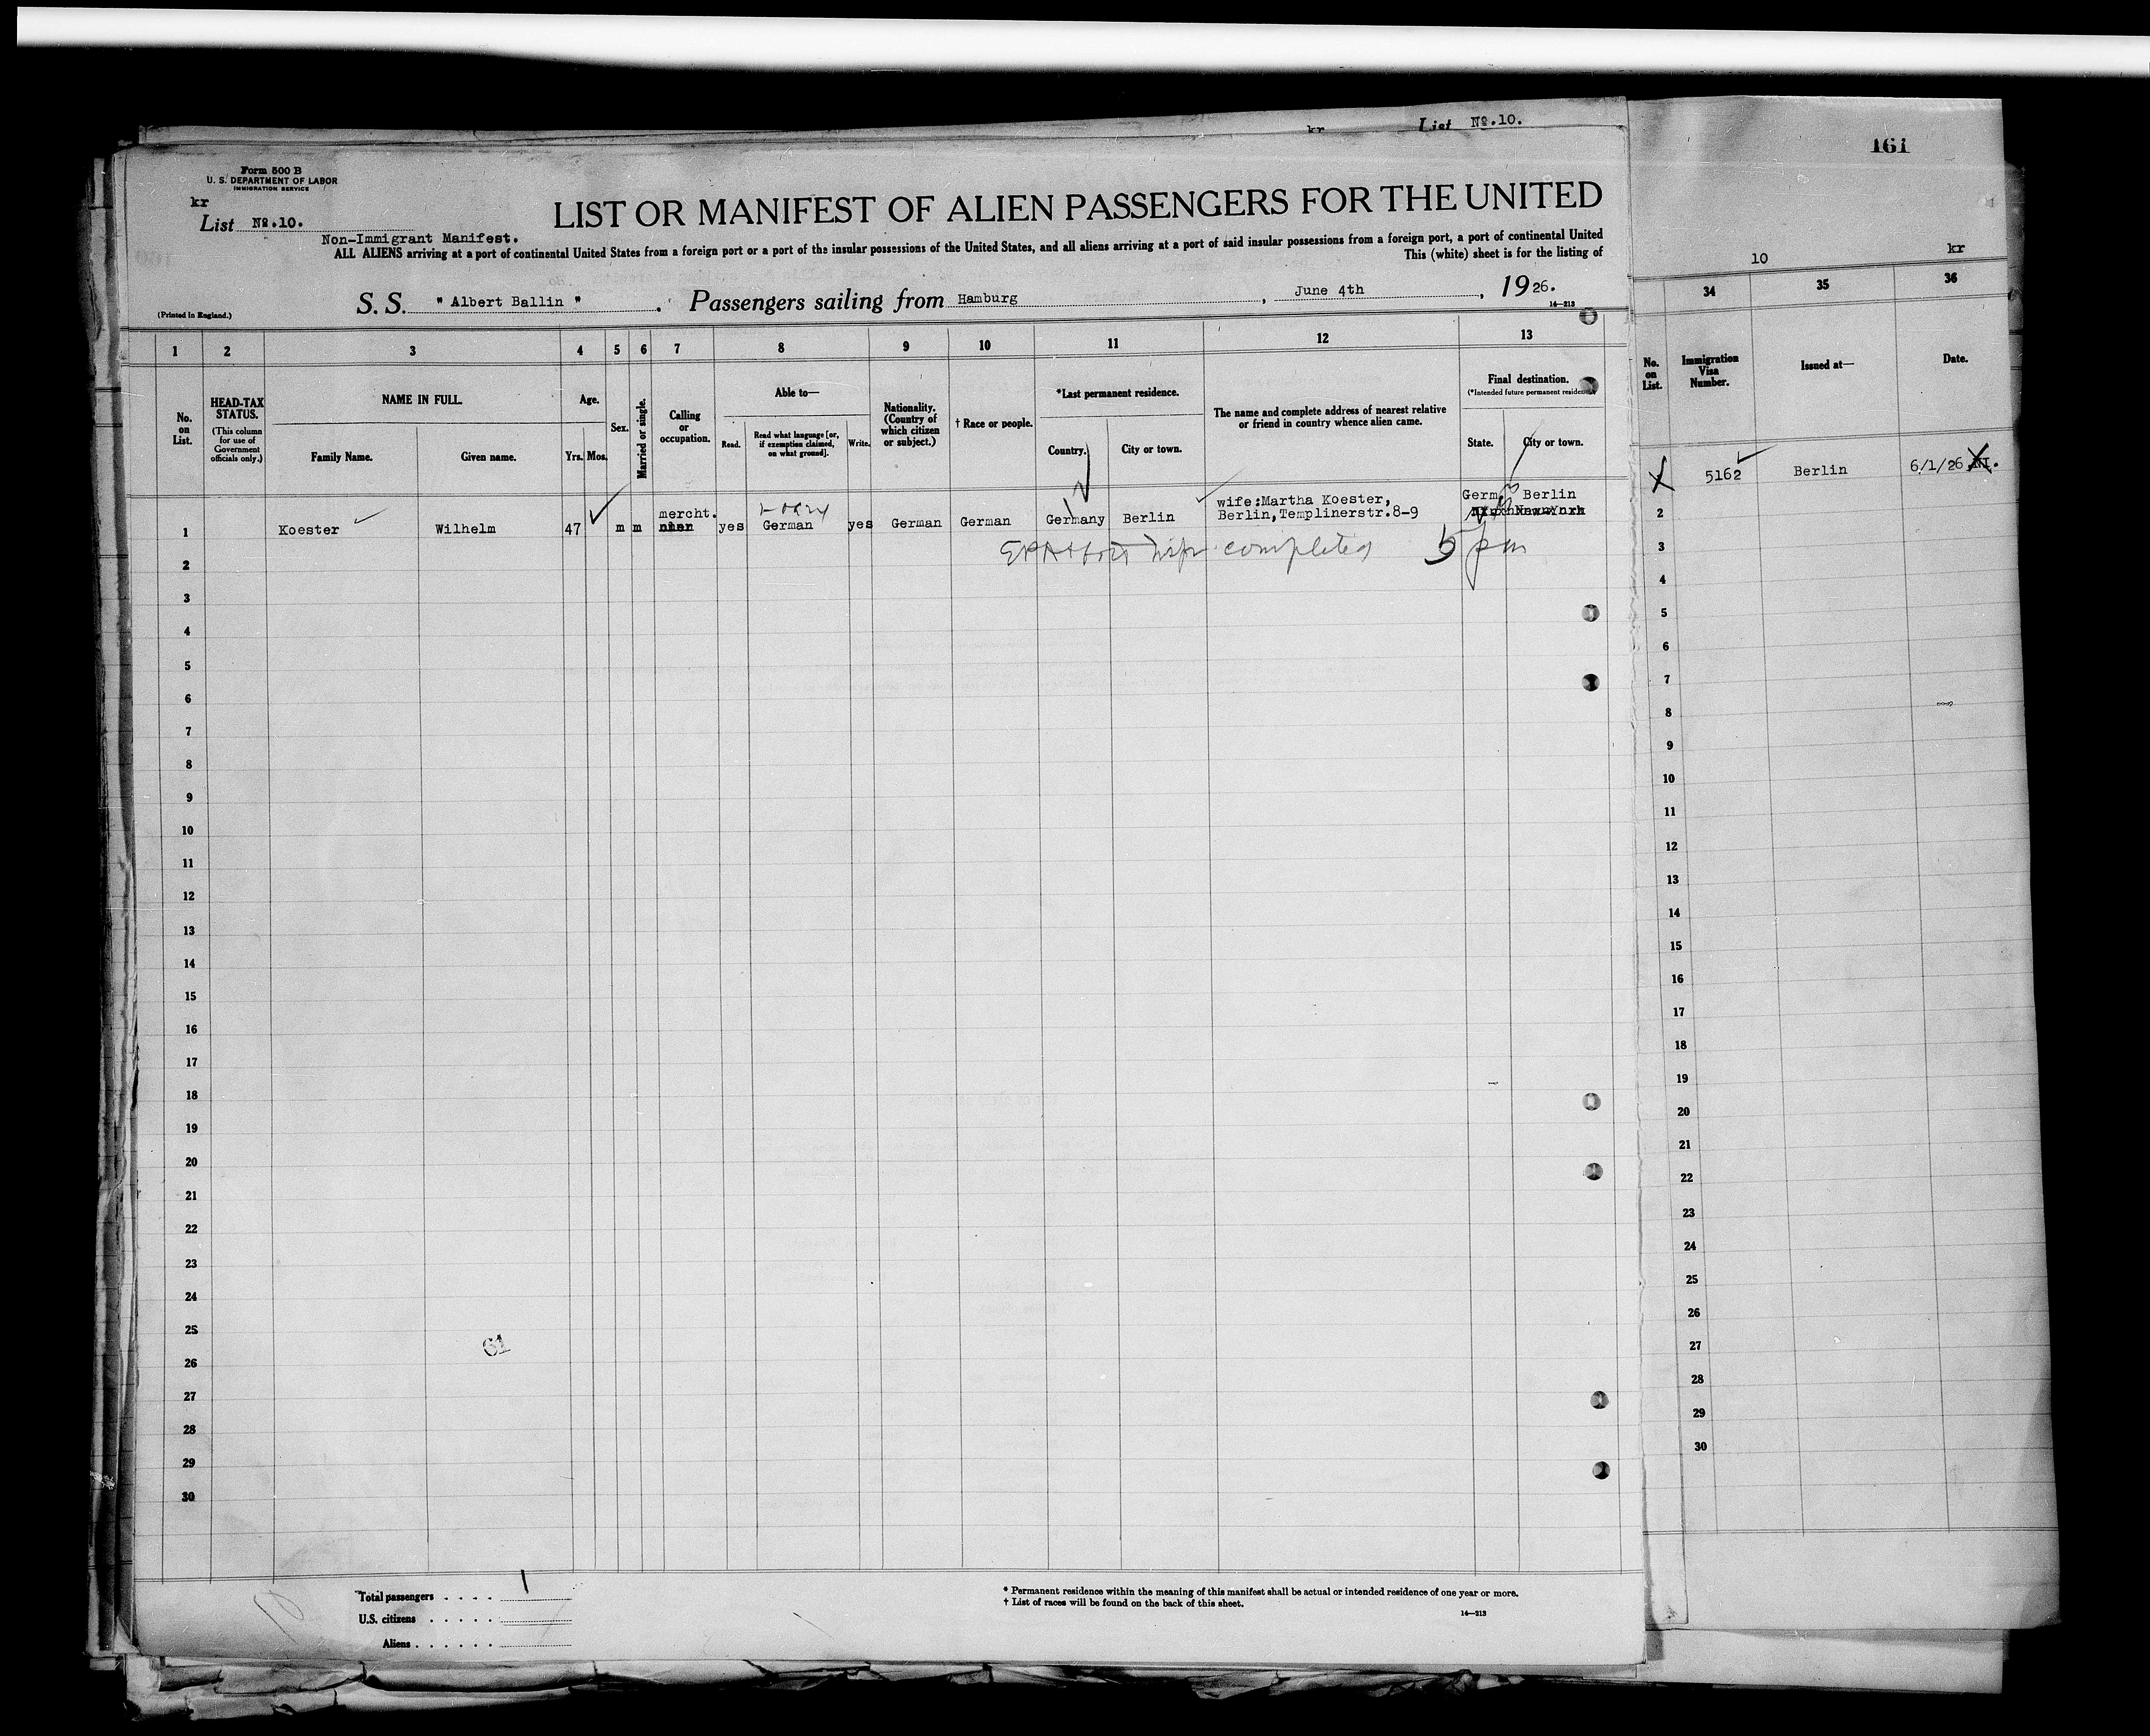 kr List No.10.
161
Form 500 B
U. S. DEPARTMENT OF LABOR
IMMIGRATION SERVICE
kr
List No.10.
LIST OR MANIFEST OF ALIEN PASSENGERS FOR THE UNITED
Non-Immigrant Manifest.
ALL ALIENS arriving at a port of continental United States from a foreign port or a port of the insular possessions of the United States, and all aliens arriving at a port of said insular possessions from a foreign port, a port of continental United
This (white) sheet is for the listing of
S. S. " Albert Ballin " . Passengers sailing from Hamburg , June 4th , 1926.
(Printed in England.)
14—213
10 kr
1 2 3 4 5 6 7 8 9 10 11 12 13
34 35 36
No. on List.
HEAD-TAX STATUS.
(This column for use of Government officials only.)
NAME IN FULL.
Family Name. Given name.
Age.
Yrs. Mos.
Sex.
Married or single.
Calling or occupation.
Able to—
Read. Read what language [or, if exemption claimed, on what ground]. Write.
Nationality. (Country of which citizen or subject.)
† Race or people.
*Last permanent residence.
Country. City or town.
The name and complete address of nearest relative or friend in country whence alien came.
Final destination.
(*Intended future permanent residence)
State. City or town.
No. on List.
Immigration Visa Number.
Issued at—
Date.
5162 Berlin 6/1/26
1 Koester Wilhelm 47 m m mercht. yes German yes German German Germany Berlin wife:Martha Koester, Berlin,Templinerstr.8-9 Germ. Berlin
completed 5 pm
2
3
4
5
6
7
8
9
10
11
12
13
14
15
16
17
18
19
20
21
22
23
24
25
26
27
28
29
30
2
3
4
5
6
7
8
9
10
11
12
13
14
15
16
17
18
19
20
21
22
23
24
25
26
27
28
29
30
61
10
Total passengers . . . . 1
U.S. citizens . . . . .
Aliens . . . . . .
* Permanent residence within the meaning of this manifest shall be actual or intended residence of one year or more.
† List of races will be found on the back of this sheet.
14—213